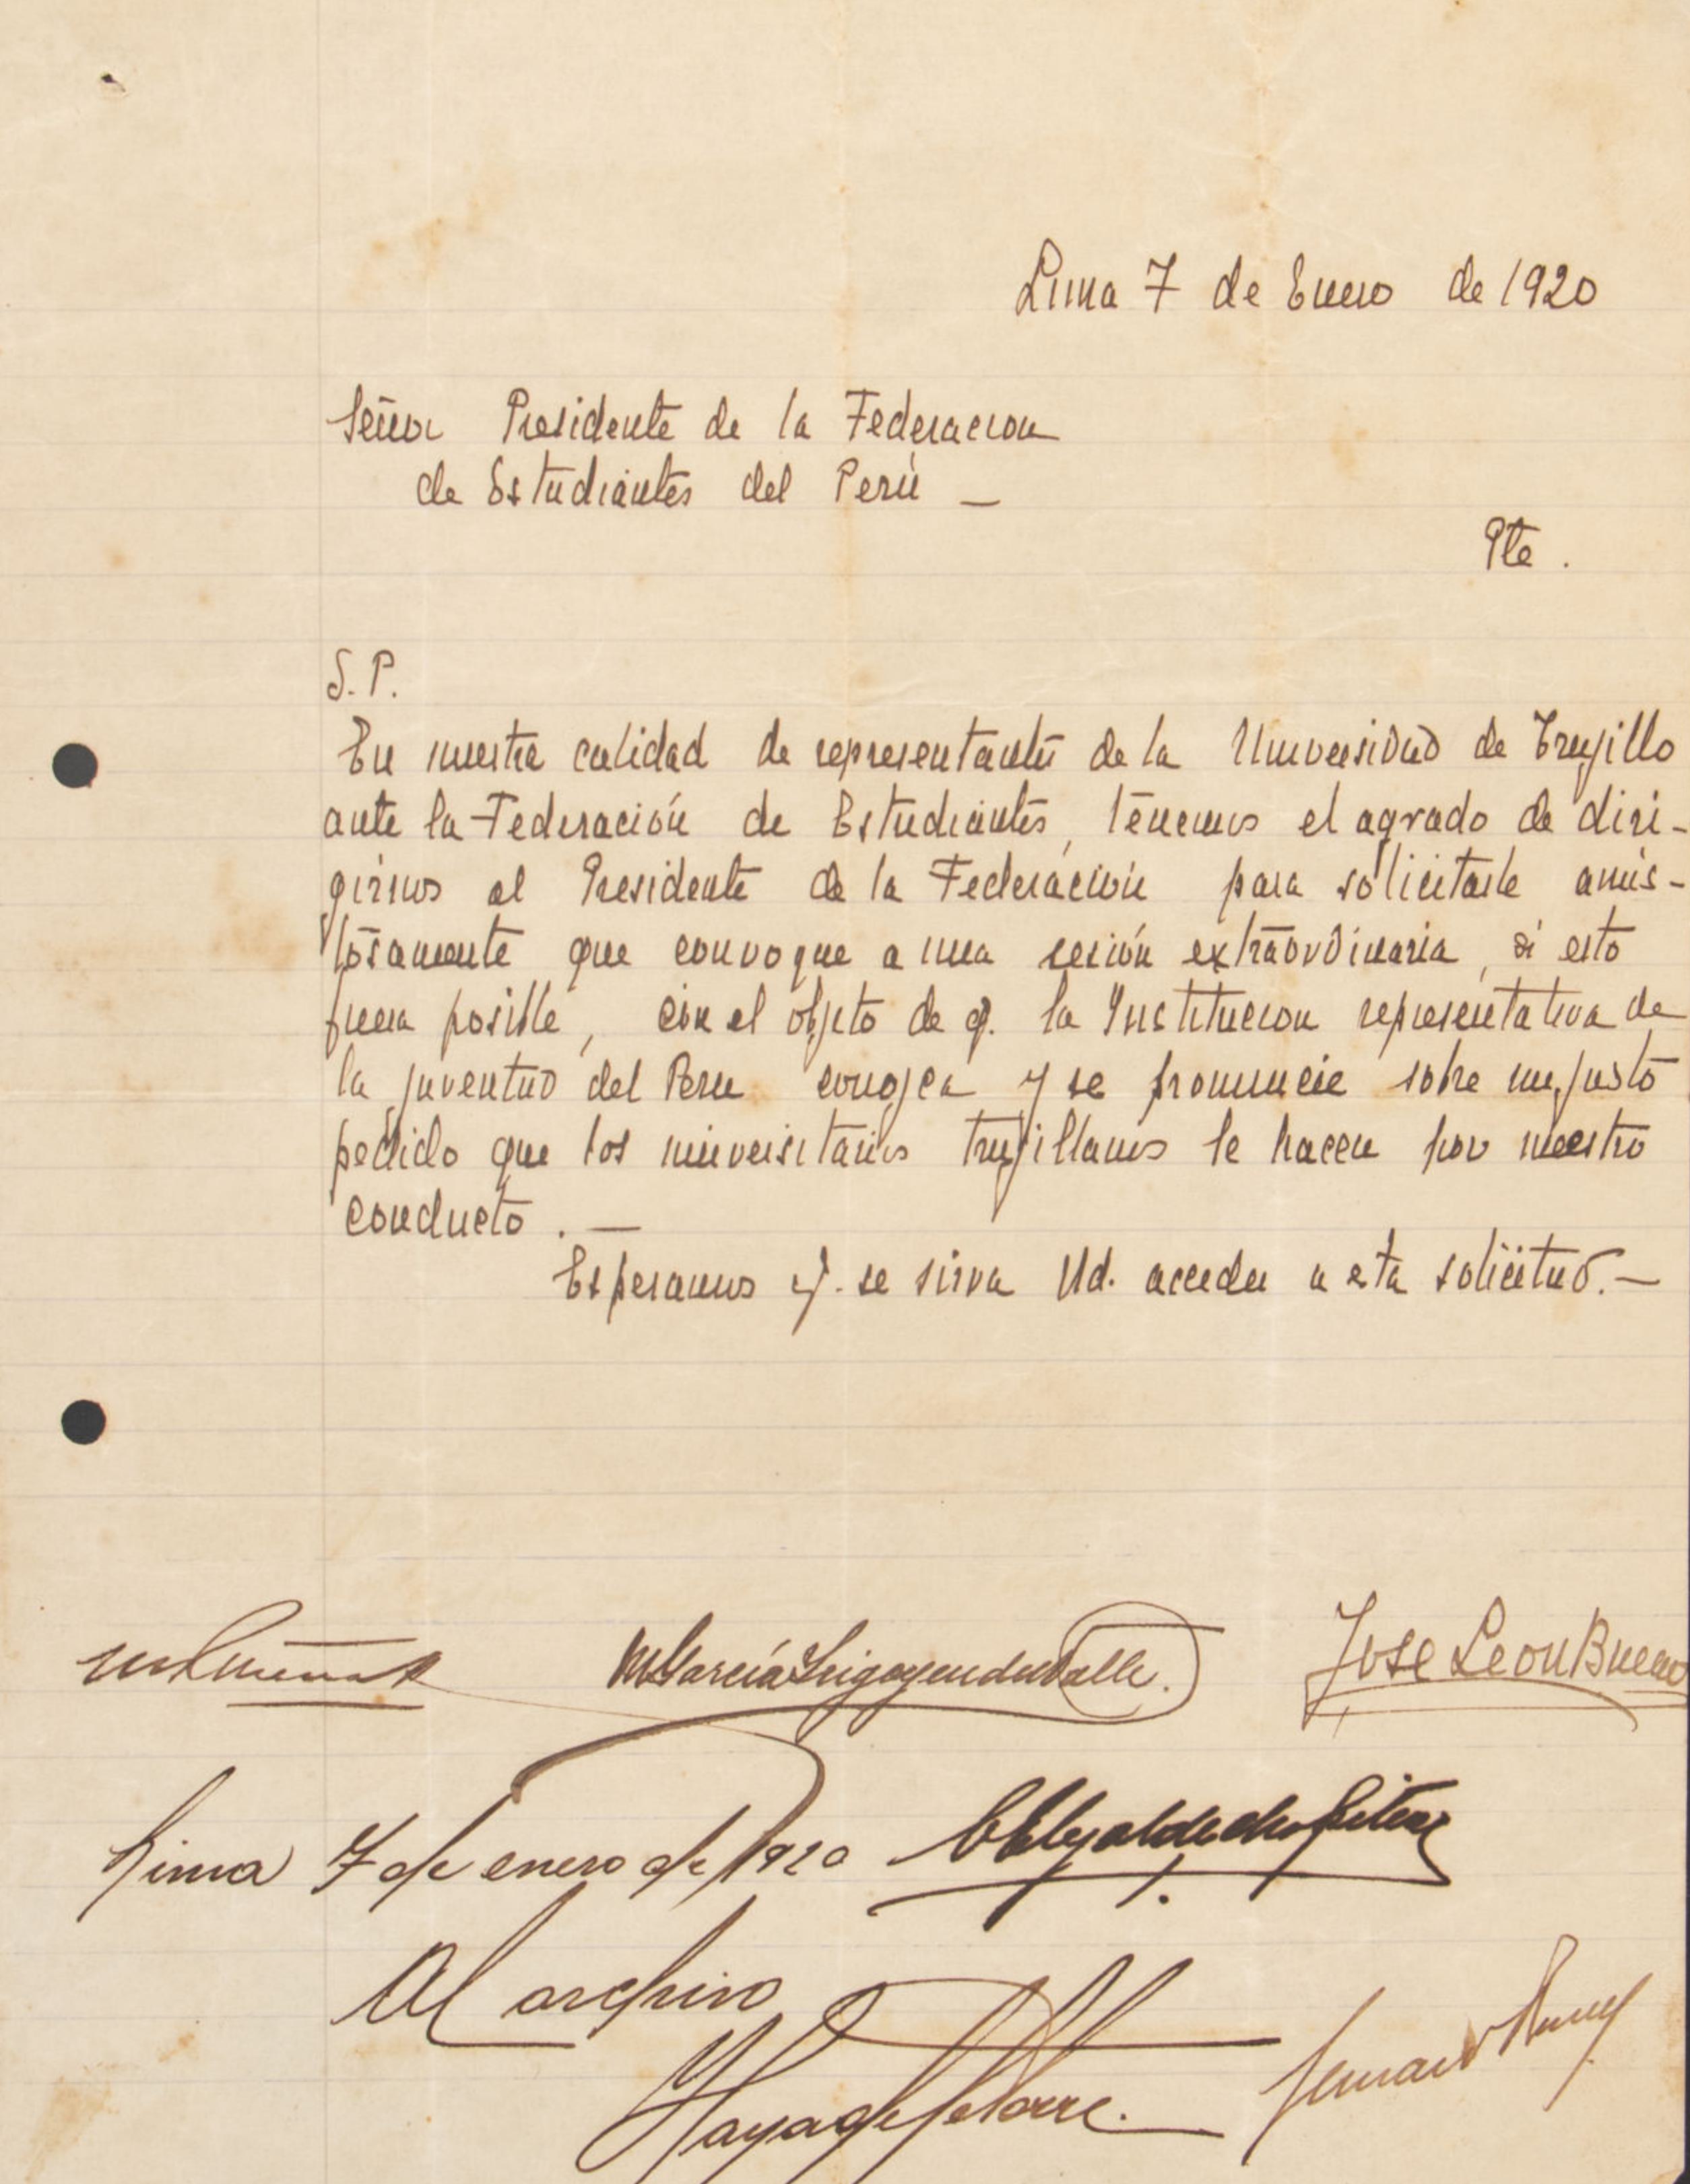 Lima 7 de Enero de 1920
Señor Presidente de la Federacion
de Estudiantes del Perú —
Pte.
S. P.
En nuestra calidad de representantes de la Universidad de Trujillo
ante la Federación de Estudiantes, tenemos el agrado de diri-
girnos al Presidente de la Federación para solicitarle amis-
tosamente que convoque a una sesión extraordinaria, si esto
fuera posible, con el objeto de q. la Institucion representativa de
la juventud del Peru conozca y se pronuncie sobre un justo
pedido que los universitarios trujillanos le hacen por nuestro
conducto. —
Esperamos q. se sirva Ud. acceder a esta solicitud. —
M García Irigoyen del Valle.
Jose Leon Bueno
Lima 7 de enero de 1920
Al archivo
Haya de la Torre.